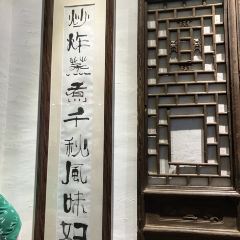 炒炸蒸煮千秋風味妃